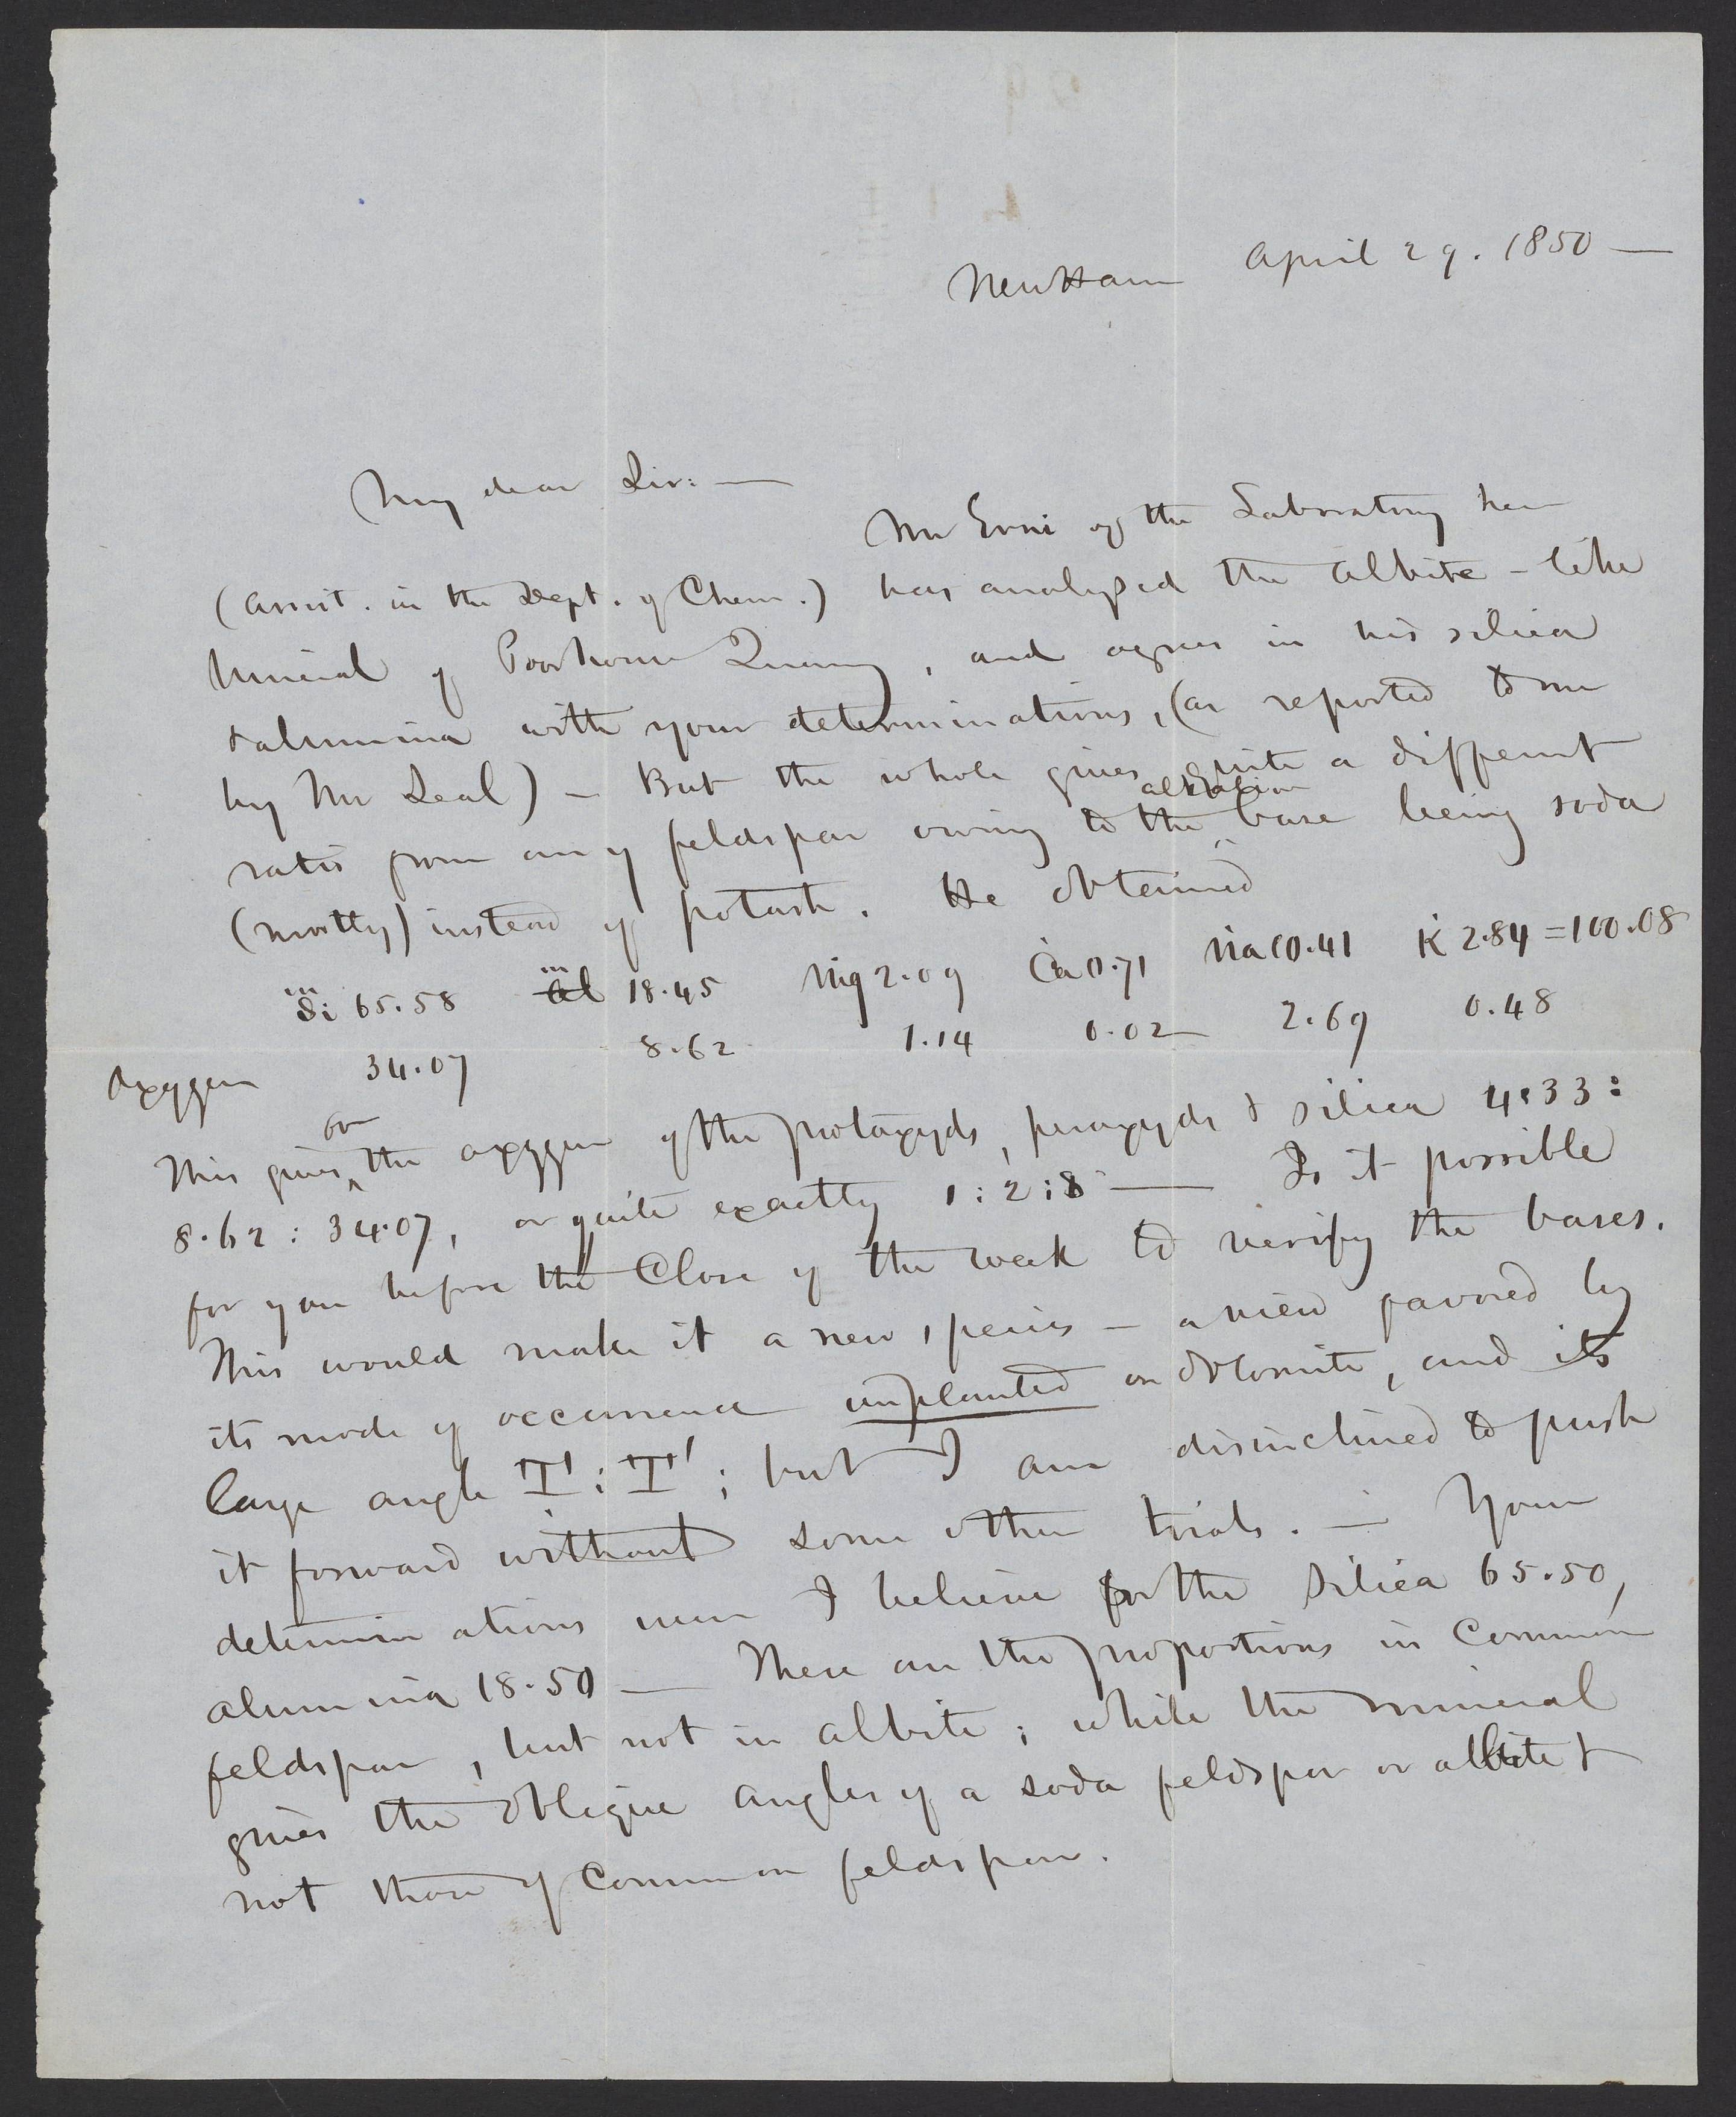 New Haven April 29. 1850 —
My dear Sir: —
Mr Erni of the Laboratory here
(Assist. in the Dept. of Chem.) has analyzed the albite-like
mineral of Poorhouse Quarry, and agrees in his silica
& alumina with your determinations, (as reported to me
by Mr Seal) — But the whole gives quite a different
alkaline
ratio from any feldspar owing to the base being soda
(mostly) instead of potash. He obtained
Si 65.58 Al 18.45 Mg 2.09 Ca 0.71 Na 10.41 K 2.84 = 100.08
Oxygen 34.07 8.62 1.14 0.02 2.69 0.48
for
This gives ‸ the oxygen of the protoxyds, peroxyds & silica 4.33:
8.62 : 34.07, or quite exactly 1:2:8 — Is it possible
for you before the close of the week to verify the bases.
This would make it a new species — a view favored by
its mode of occurrence implanted on dolomite, and its
large angle T : T' ; but I am disinclined to push
it forward without some other trials. — Your
determinations were I believe for the silica 65.50,
alumina 18.50 — These are the proportions in common
feldspar, but not in albite; while the mineral
gives the oblique angles of a soda feldspar or albite &
not those of common feldspar.